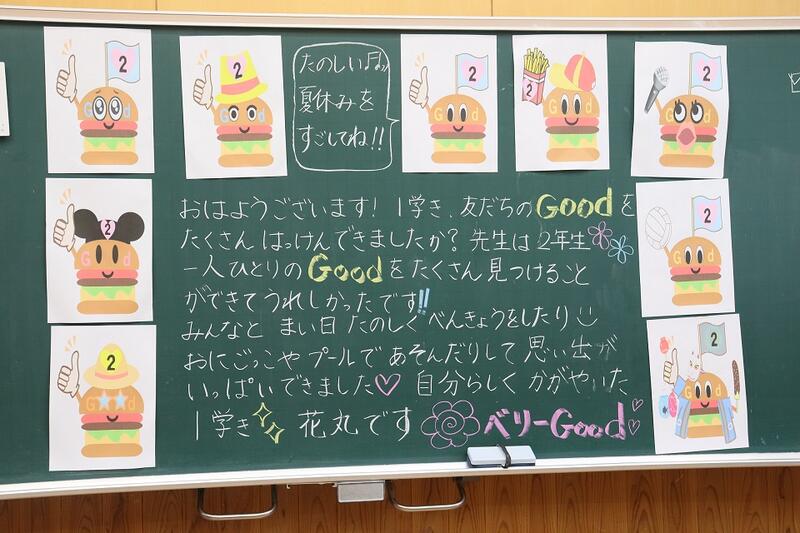 たのしい♫
夏休みを
すごしてね!!
おはようございます! 1学き、友だちのGoodを
たくさんはっけんできましたか? 先生は2年生
一人ひとりのGoodをたくさん見つけること
ができてうれしかったです!!
みんなと まい日 たのしく べんきょうをしたり
おにごっこや プールで あそんだりして 思い出が
いっぱいできました♡ 自分らしく かがやいた
1学き 花丸です ベリーGood♡
2
2
2
2
2
2
2
2
2
Good
Good
Good
Good